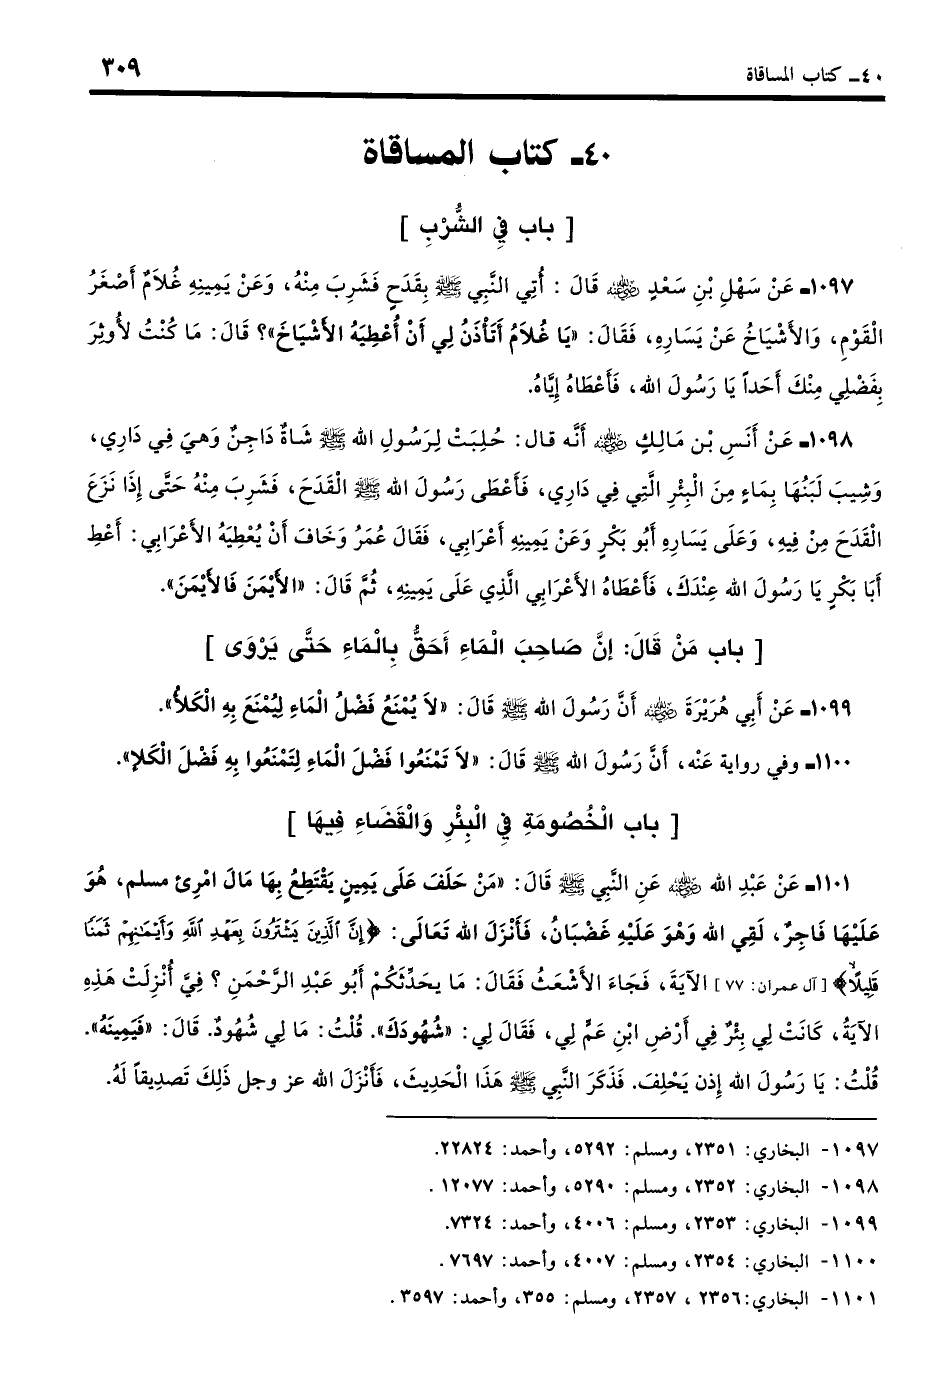 ٤٠ـ كتاب المساقاة ٣٠٩
٤٠ـ كتاب المساقاة
[ باب فِي الشُّرْبِ ]
١٠٩٧ـ عَنْ سَهْلِ بْنِ سَعْدٍ ﵁ قَالَ : أُتِي النَّبِي ﷺ بِقَدَحٍ فَشَرِبَ مِنْهُ، وَعَنْ يَمِينِهِ غُلَامٌ أَصْغَرُ
الْقَوْمِ، وَالأَشْيَاخُ عَنْ يَسَارِهِ، فَقَالَ: «يَا غُلَامُ أَتَأْذَنُ لِي أَنْ أُعْطِيَهُ الأَشْيَاخَ»؟ قَالَ: مَا كُنْتُ لأُوثِرَ
بِفَضْلِي مِنْكَ أَحَداً يَا رَسُولَ الله، فَأَعْطَاهُ إِيَّاهُ.
١٠٩٨ـ عَنْ أَنَسِ بْن مَالِكٍ ﵁ أَنَّه قال: حُلِبَتْ لِرَسُولِ الله ﷺ شَاةٌ دَاجِنٌ وَهيَ فِي دَارِي،
وَشِيبَ لَبَنُهَا بِمَاءٍ مِنَ الْبِئْرِ الَّتِي فِي دَارِي، فَأَعْطَى رَسُولَ الله ﷺ الْقَدَحَ، فَشَرِبَ مِنْهُ حَتَّى إِذَا نَزَعَ
الْقَدَحَ مِنْ فِيهِ، وَعَلَى يَسَارِهِ أَبُو بَكْرٍ وَعَنْ يَمِينِهِ أَعْرَابِي، فَقَالَ عُمَرُ وَخَافَ أَنْ يُعْطِيَهُ الأَعْرَابِي: أَعْطِ
أَبَا بَكْرٍ يَا رَسُولَ الله عِنْدَكَ، فَأَعْطَاهُ الأَعْرَابِي الَّذِي عَلَى يَمِينِهِ، ثُمَّ قَالَ: «الأَيْمَنَ فَالأَيْمَنَ».
[ باب مَنْ قَالَ: إنَّ صَاحِبَ الْمَاءِ أَحَقُّ بِالْمَاءِ حَتَّى يَرْوَى ]
١٠٩٩ـ عَنْ أَبِي هُرَيْرَةَ ﵁ أَنَّ رَسُولَ الله ﷺ قَالَ: «لاَ يُمْنَعُ فَضْلُ الْمَاءِ لِيُمْنَعَ بِهِ الْكَلأُ».
١١٠٠ـ وفي رواية عَنْه، أَنَّ رَسُولَ الله ﷺ قَالَ: «لاَ تَمْنَعُوا فَضْلَ الْمَاءِ لِتَمْنَعُوا بِهِ فَضْلَ الْكَلإِ».
[ باب الْخُصُومَةِ فِي الْبِئْرِ وَالْقَضَاءِ فِيهَا ]
١١٠١ـ عَنْ عَبْدِ الله ﵁ عَنِ النَّبِي ﷺ قَالَ: «مَنْ حَلَفَ عَلَى يَمِينٍ يَقْتَطِعُ بِهَا مَالَ امْرِئ مسلم، هُوَ
عَلَيْهَا فَاجِرٌ، لَقِي الله وَهوَ عَلَيْهِ غَضْبَانُ، فَأَنْزَلَ الله تَعَالَى: ﴿إِنَّ ٱلَّذِينَ يَشْتَرُونَ بِعَهْدِ ٱللَّهِ وَأَيْمَٰنِهِمْ ثَمَنًا
قَلِيلًا﴾ [آل عمران: ٧٧] الآيَةَ، فَجَاءَ الأَشْعَثُ فَقَالَ: مَا يحَدِّثَكُمْ أَبُو عَبْدِ الرَّحْمَنِ ؟ فِيَّ أُنْزِلَتْ هَذِهِ
الآيَةُ، كَانَتْ لِي بِئْرٌ فِي أَرْضِ ابْنِ عَمٍّ لِي، فَقَالَ لِي: «شُهُودَكَ». قُلْتُ: مَا لِي شُهُودٌ. قَالَ: «فَيَمِينَهُ».
قُلْتُ: يَا رَسُولَ الله إِذن يَحْلِفَ. فَذَكَرَ النَّبِي ﷺ هَذَا الْحَدِيثَ، فَأَنْزَلَ الله عز وجل ذَلِكَ تَصدِيقاً لَهُ.
١٠٩٧- البخاري: ٢٣٥١، ومسلم: ٥٢٩٢، وأحمد: ٢٢٨٢٤.
١٠٩٨- البخاري: ٢٣٥٢، ومسلم: ٥٢٩٠، وأحمد: ١٢٠٧٧ .
١٠٩٩- البخاري: ٢٣٥٣، ومسلم: ٤٠٠٦، وأحمد: ٧٣٢٤.
١١٠٠- البخاري: ٢٣٥٤، ومسلم: ٤٠٠٧، وأحمد: ٧٦٩٧ .
١١٠١- البخاري:٢٣٥٦ ، ٢٣٥٧، ومسلم: ٣٥٥، وأحمد: ٣٥٩٧ .